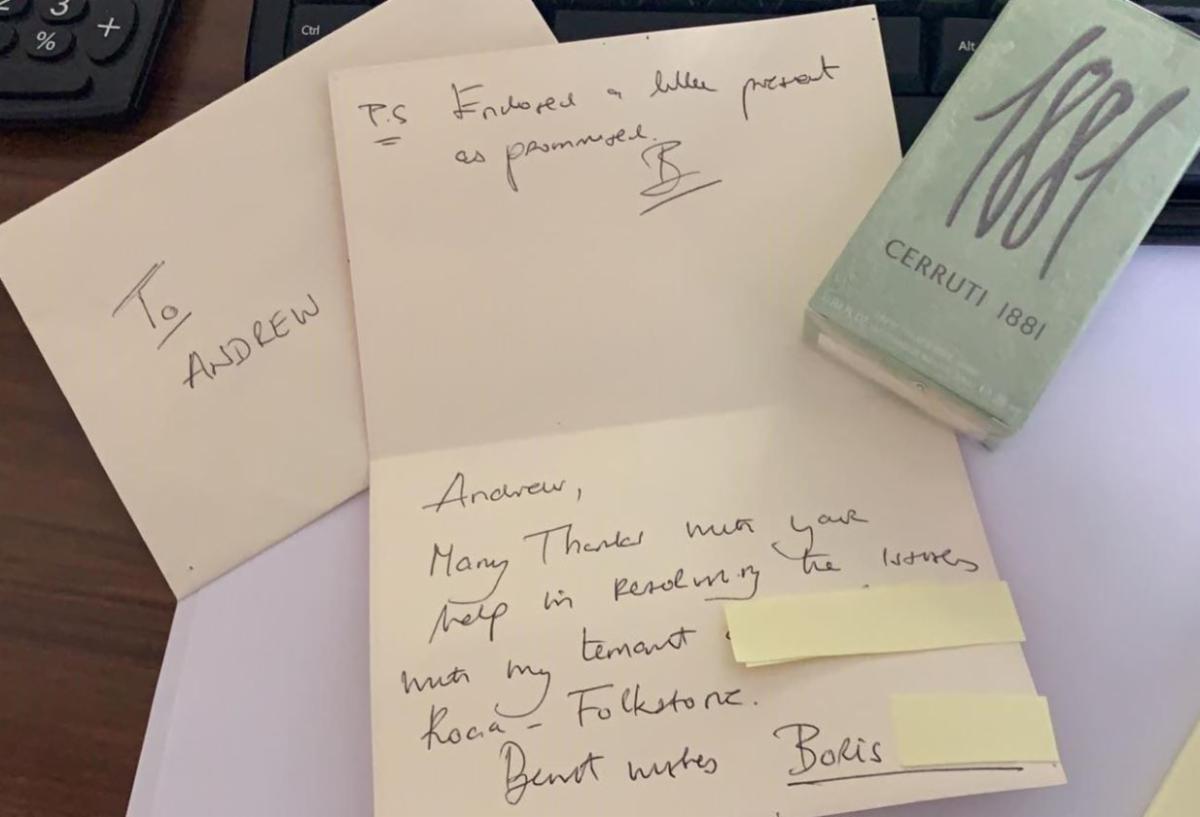 3
%
+
Ctrl
Alt
To
ANDREW
P.S Enclosed a little present
as promised.
B
1881
CERRUTI 1881
Andrew,
Many Thanks with your
help in resolving the issues
with my tenant
Road - Folkstone.
Best wishes Boris